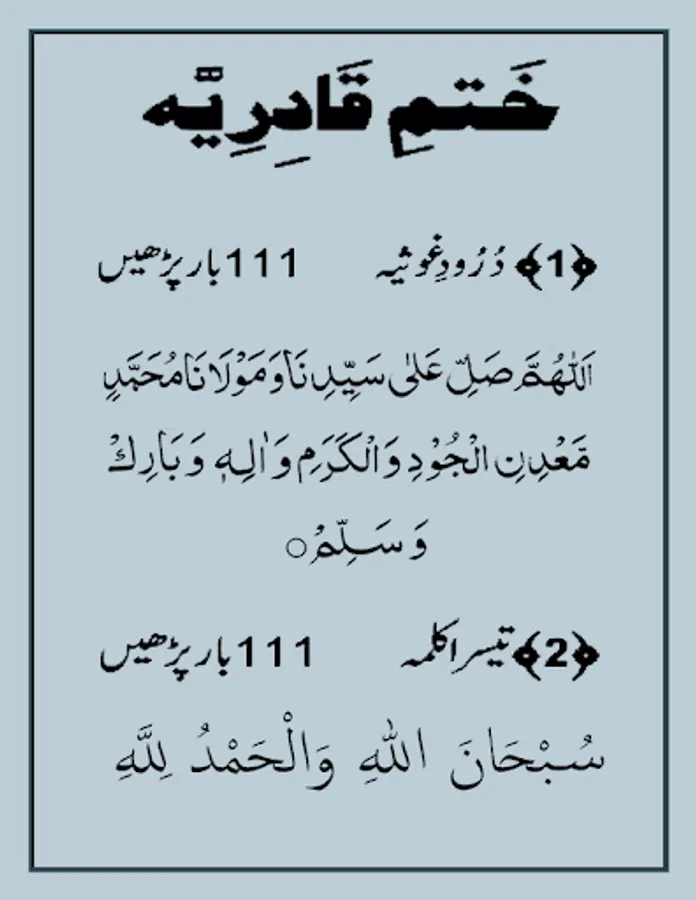 خَتمِ قَادِرِيَّه
﴿1﴾ دُرُودِ غوثیہ 111 بار پڑھیں
اَللّٰهُمَّ صَلِّ عَلٰى سَيِّدِنَا وَمَوْلَانَا مُحَمَّدٍ
مَّعْدِنِ الْجُوْدِ وَالْكَرَمِ وَاٰلِهٖ وَبَارِكْ
وَسَلِّمْ○
﴿2﴾ تیسرا کلمہ 111 بار پڑھیں
سُبْحَانَ اللهِ وَالْحَمْدُ لِلَّهِ